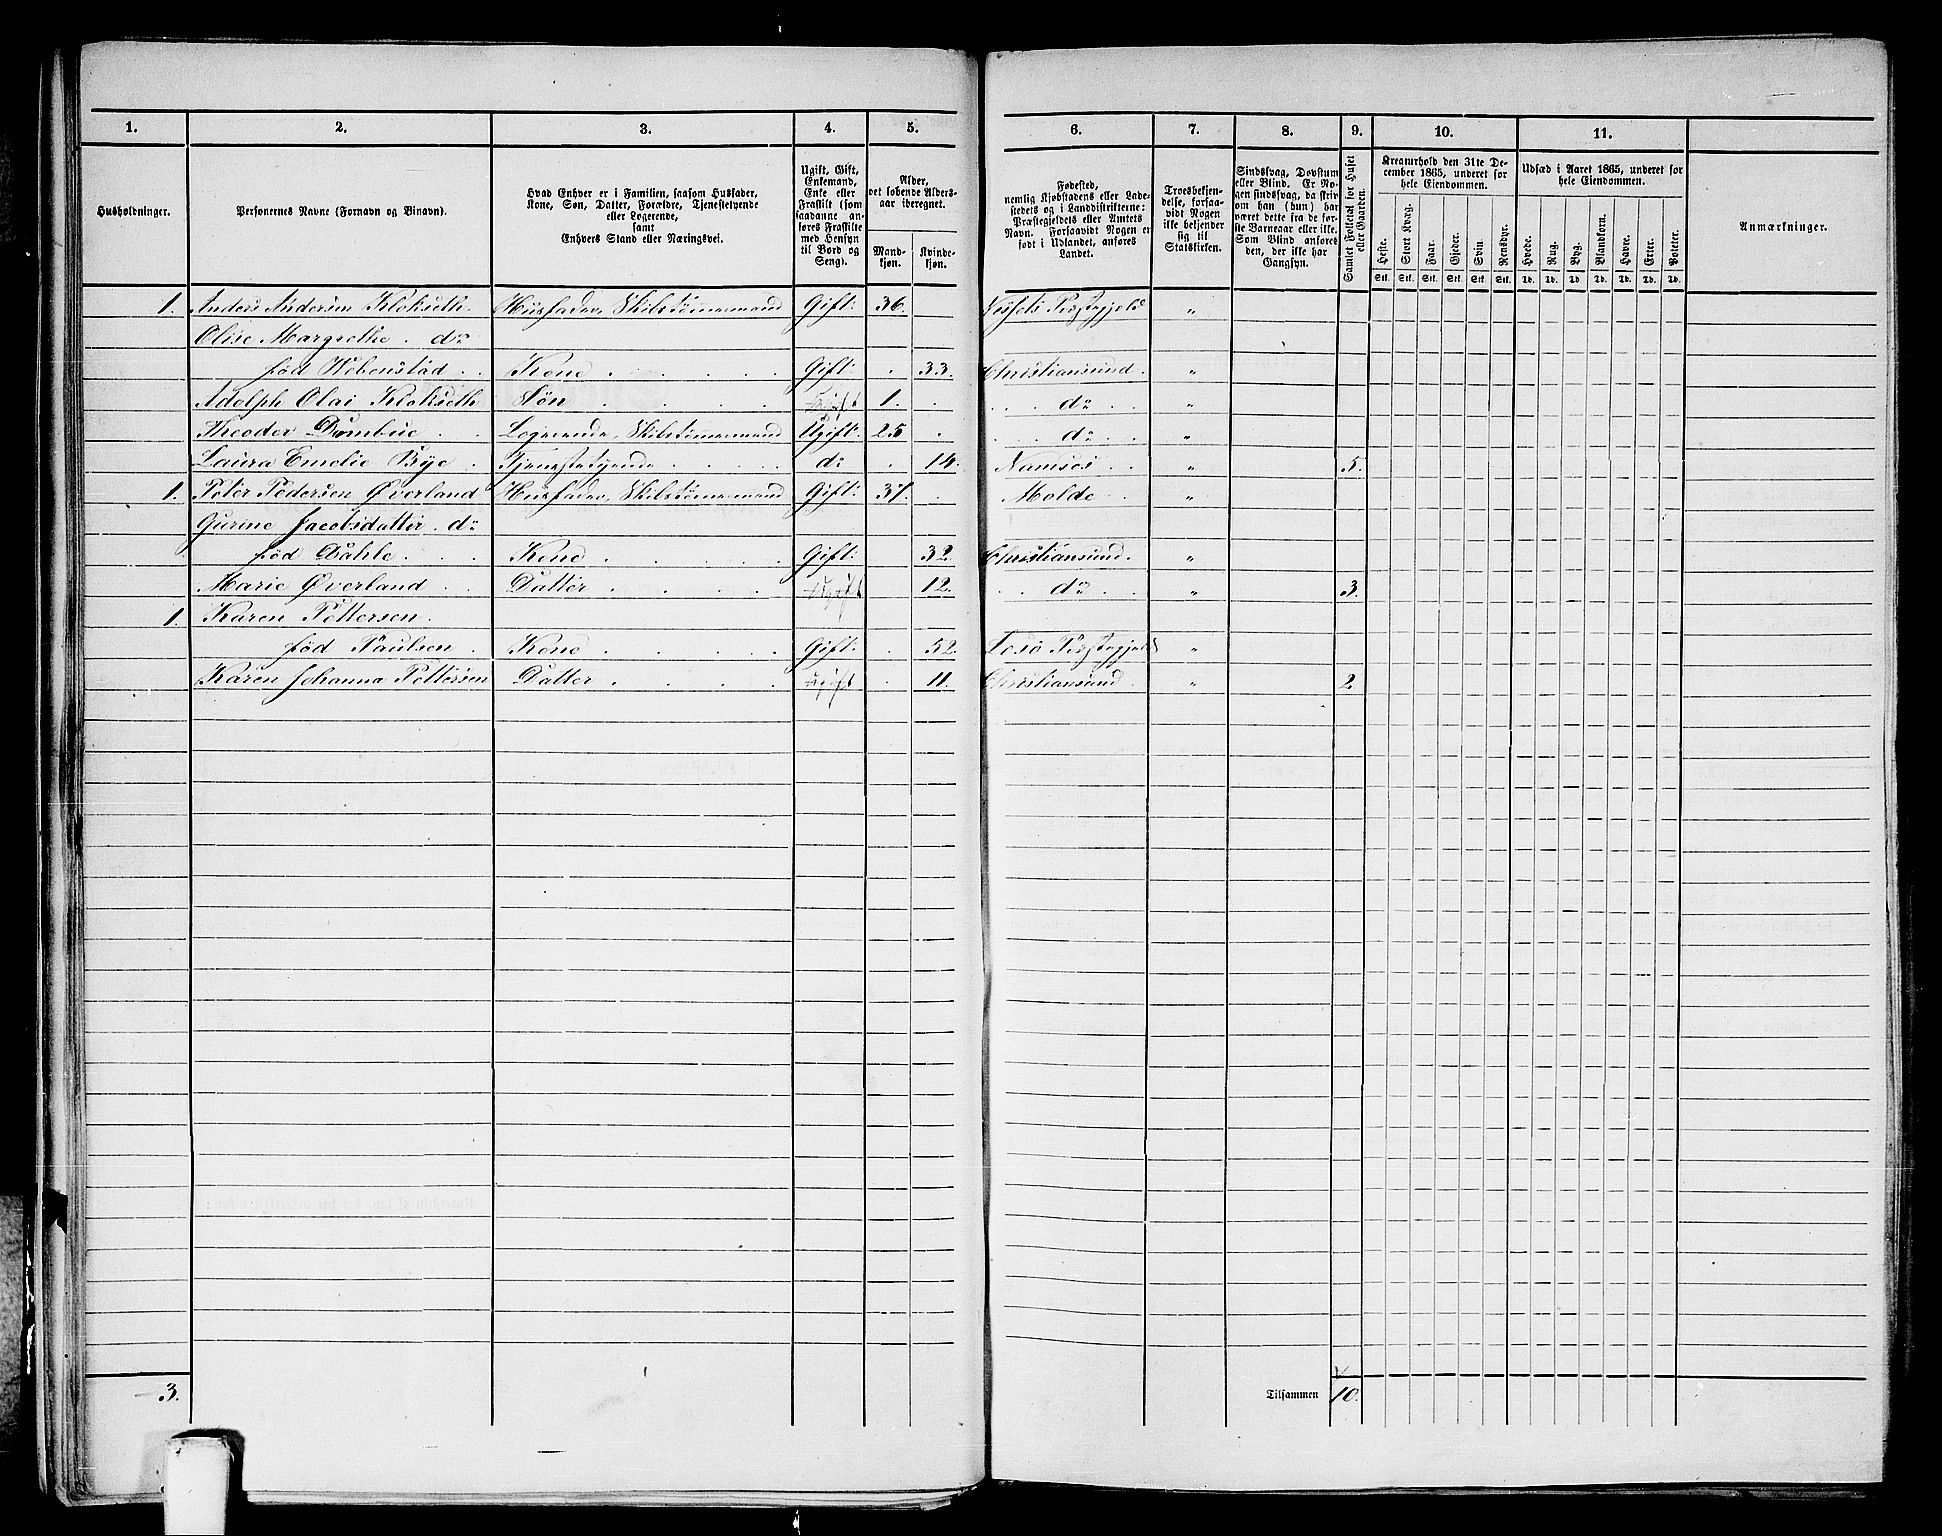 1. 2. 3. 4. 5. 6. 7. 8. 9. 10. 11.
Husholdninger.
Personernes Navne (Fornavn og Binavn).
Hvad Enhver er i Familien, saasom Husfader,
Kone, Søn, Datter, Forældre, Tjenestetyende
eller Logerende,
samt
Enhvers Stand eller Næringsvei.
Ugift, Gift,
Enkemand,
Enke eller
Fraskilt (som
saadanne an-
føres Fraskilte
med Hensyn
til Bord og
Seng).
Alder,
det løbende Alders-
aar iberegnet.
Mand-
kjøn.
Kvinde-
kjøn.
Fødested,
nemlig Kjøbstadens eller Lade-
stedets og i Landdistrikterne:
Præstegjeldets eller Amtets
Navn. Forsaavidt Nogen er
født i Udlandet, anføres
Landet.
Troesbekjen-
delse, forsaa-
vidt Nogen
ikke bekjender
sig til
Statskirken.
Sindssvag, Døvstum
eller Blind. Er No-
gen sindssvag, da skriv
om han (hun) har
været dette fra de før-
ste Barneaar eller ikke.
Som Blind anføres
den, der ikke har
Gangsyn.
Samlet Folketal for Huset
eller Gaarden.
Kreaturhold den 31te De-
cember 1865, underet for
hele Eiendommen.
Heste. Stort Kvæg. Faar. Gjeder. Svin. Rensdyr.
Stk. Stk. Stk. Stk. Stk. Stk.
Udsæd i Aaret 1865, underet for
hele Eiendommen.
Hvede. Rug. Byg. Blandkorn. Havre. Erter. Poteter.
Td. Td. Td. Td. Td. Td. Td.
Anmærkninger.
1. Anders Andersen Klokseth Husfader, Skibstømmermand Gift. 36. Præstegjeld "
Olise Margrethe . do
fød Webenstad . . Kone . . . . . Gift. . 33. Christiansund. "
Adolph Olai Klokseth Søn . . . . . Ugift 1. . . . do . . "
Theodor Dambue . . Logerende, Skibstømmermand Ugift. 25 . . . do . . "
Laura Emelie Bye . Tjenestetyende . . . . do . 14. Namsos . . " 5.
1. Peter Pedersen Øverland Husfader, Skibstømmermand Gift. 37. . Molde . . "
Gurine Jacobsdatter . do
fød Dahle . . . Kone . . . . . Gift. . 32. Christiansund. "
Marie Øverland . . Datter . . . . Ugift . 12. . . do . . " 3.
1. Karen Pettersen .
fød Paulsen . Kone . . . . . Gift. . 52. Præstegjeld "
Karen Johanna Pettersen Datter . . . . Ugift . 11. Christiansund. " 2.
3. Tilsammen 10.